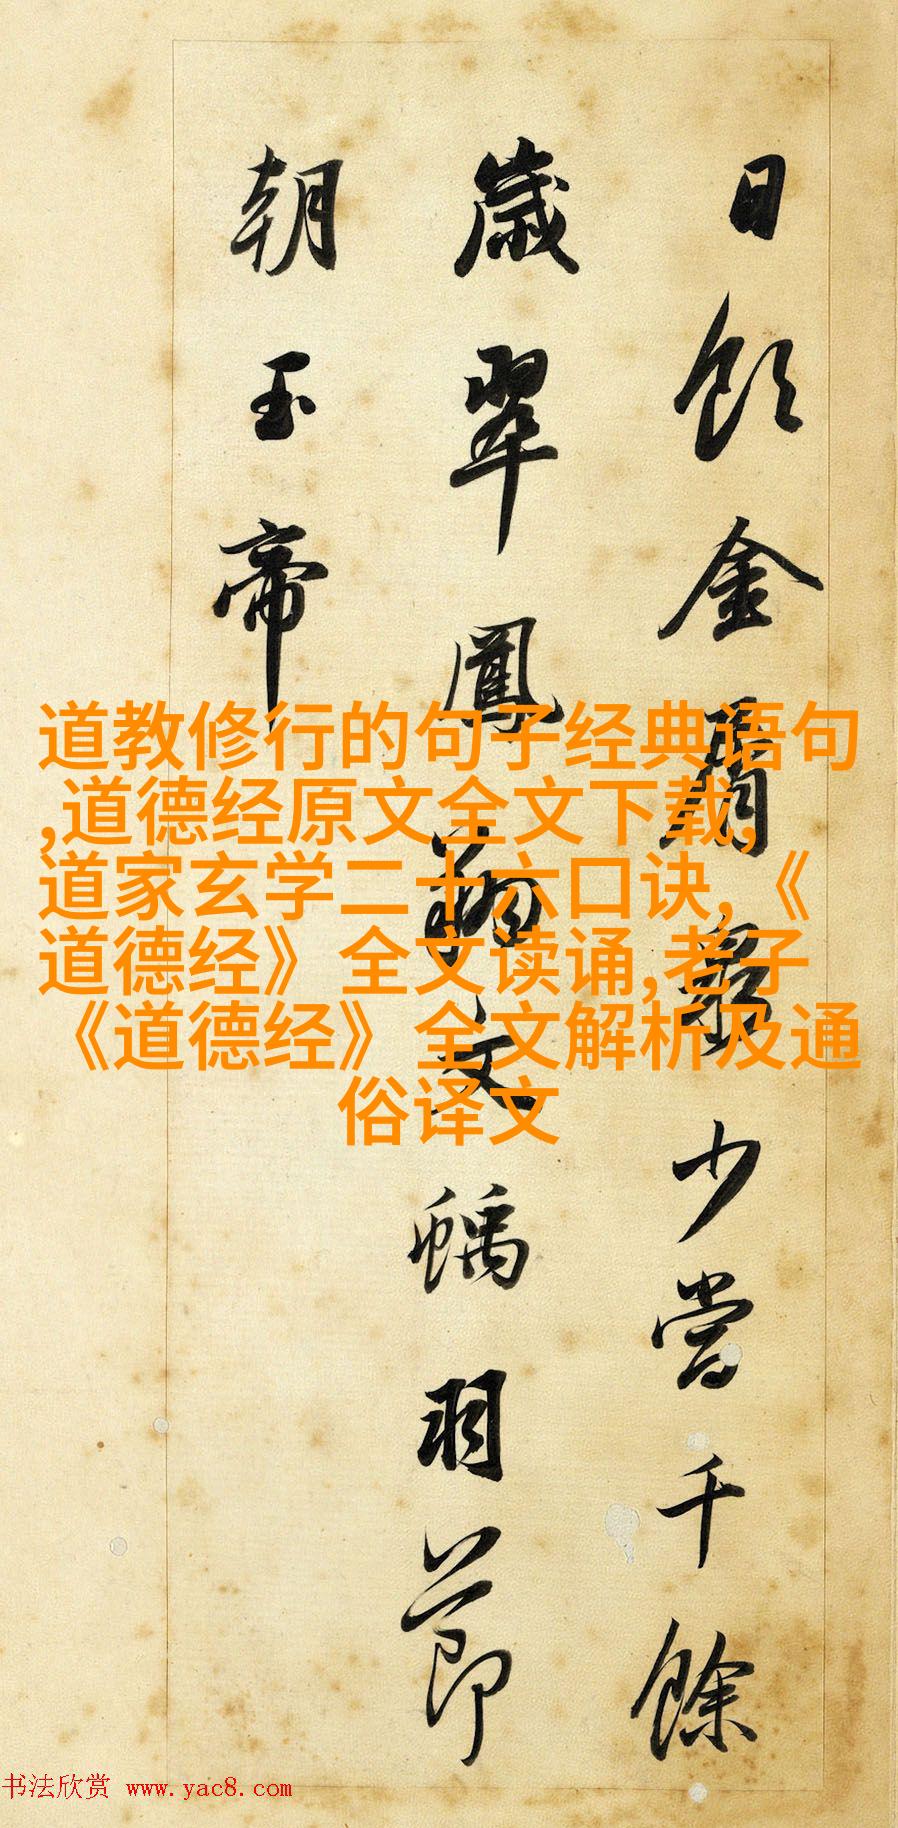 日飲金屑泉少當千餘
歲翠鳳文螭羽節
朝玉帝
道教修行的句子经典语句
,道德经原文全文下载,
道家玄学二十六口诀,《
道德经》全文读诵,老子
《道德经》全文解析及通
俗译文
书法欣赏 www.yac8.com